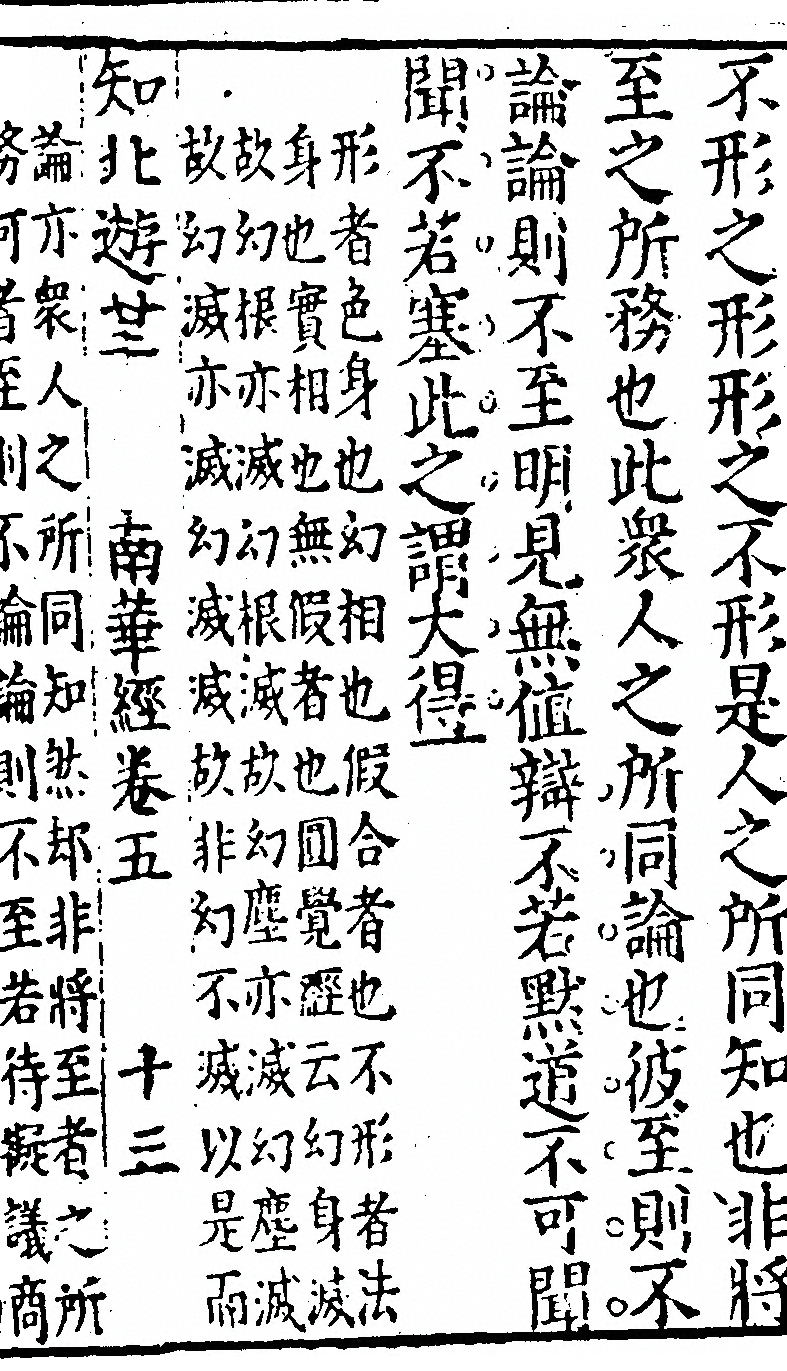 不形之形形之不形是人之所同知也非將
至之所務也此衆人之所同論也彼至則不
論論則不至明見無値辯不若默道不可聞
聞不若塞此之謂大得
形者色身也幻相也假合者也不形者法
身也實相也無假者也圓覺經云幻身滅
故幻根亦滅幻根滅故幻塵亦滅幻塵滅
故幻滅亦滅幻滅滅故非幻不滅以是而
知北遊廿三 南華經卷五 十三
論亦衆人之所同知然却非將至者之所
務何者至則不論論則不至若待擬議商